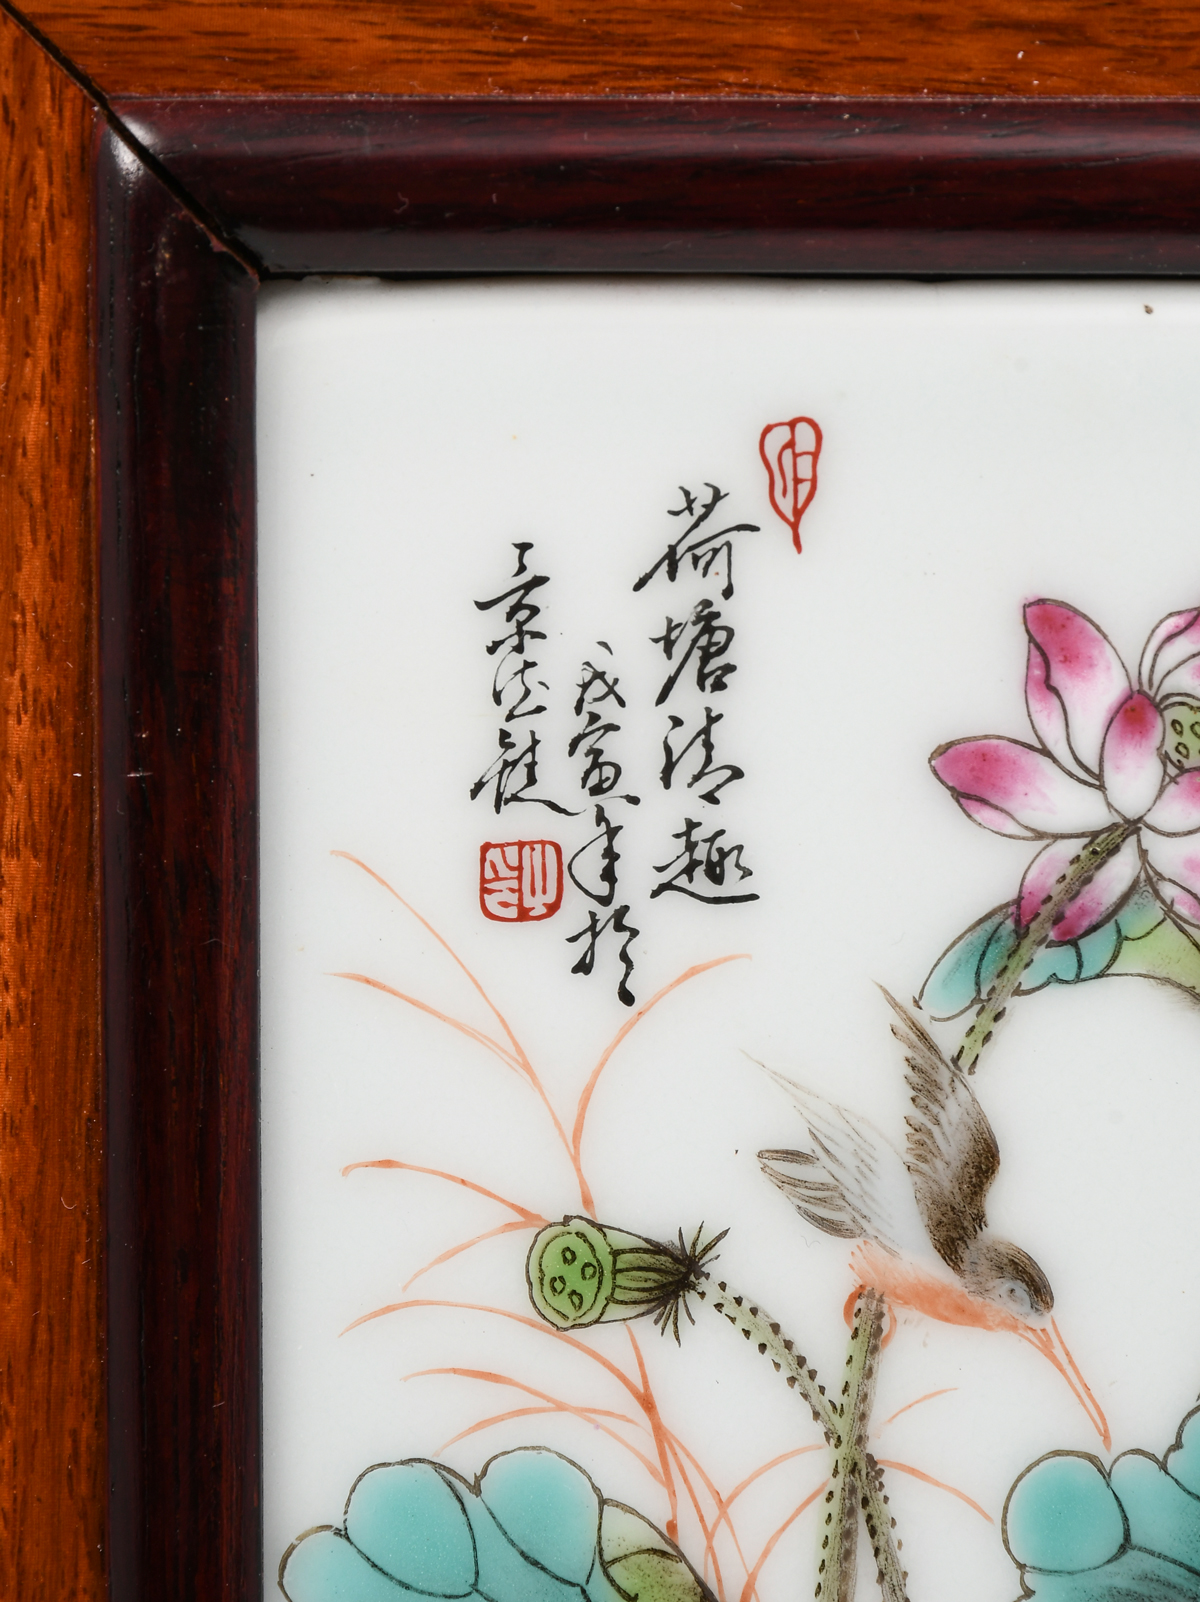 荷塘清趣
戊寅年於
景德鎮